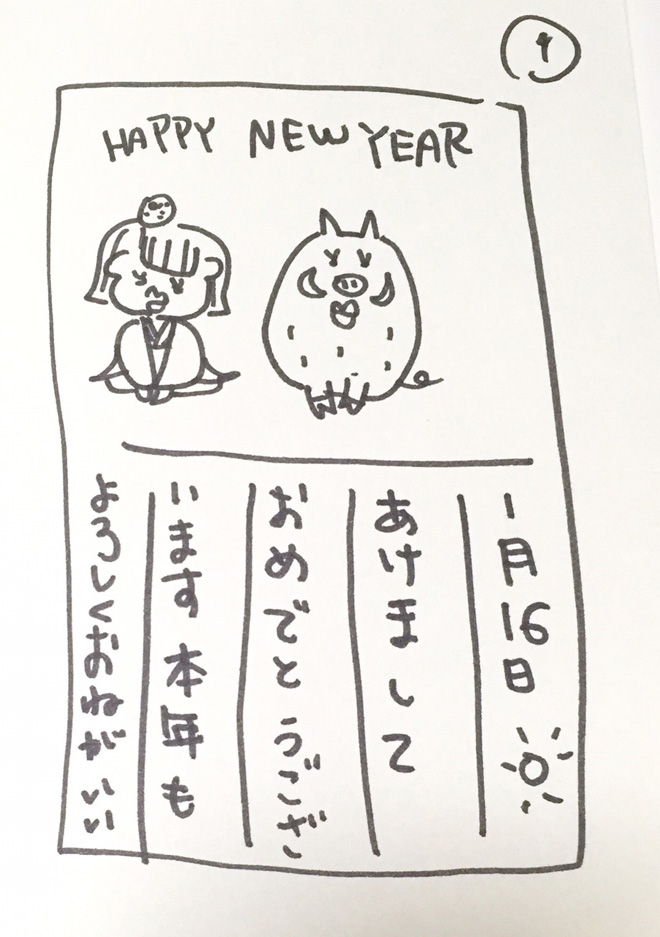 1
HAPPY NEW YEAR
1月16日
あけまして
おめでとうござ
います 本年も
よろしくおねがいい